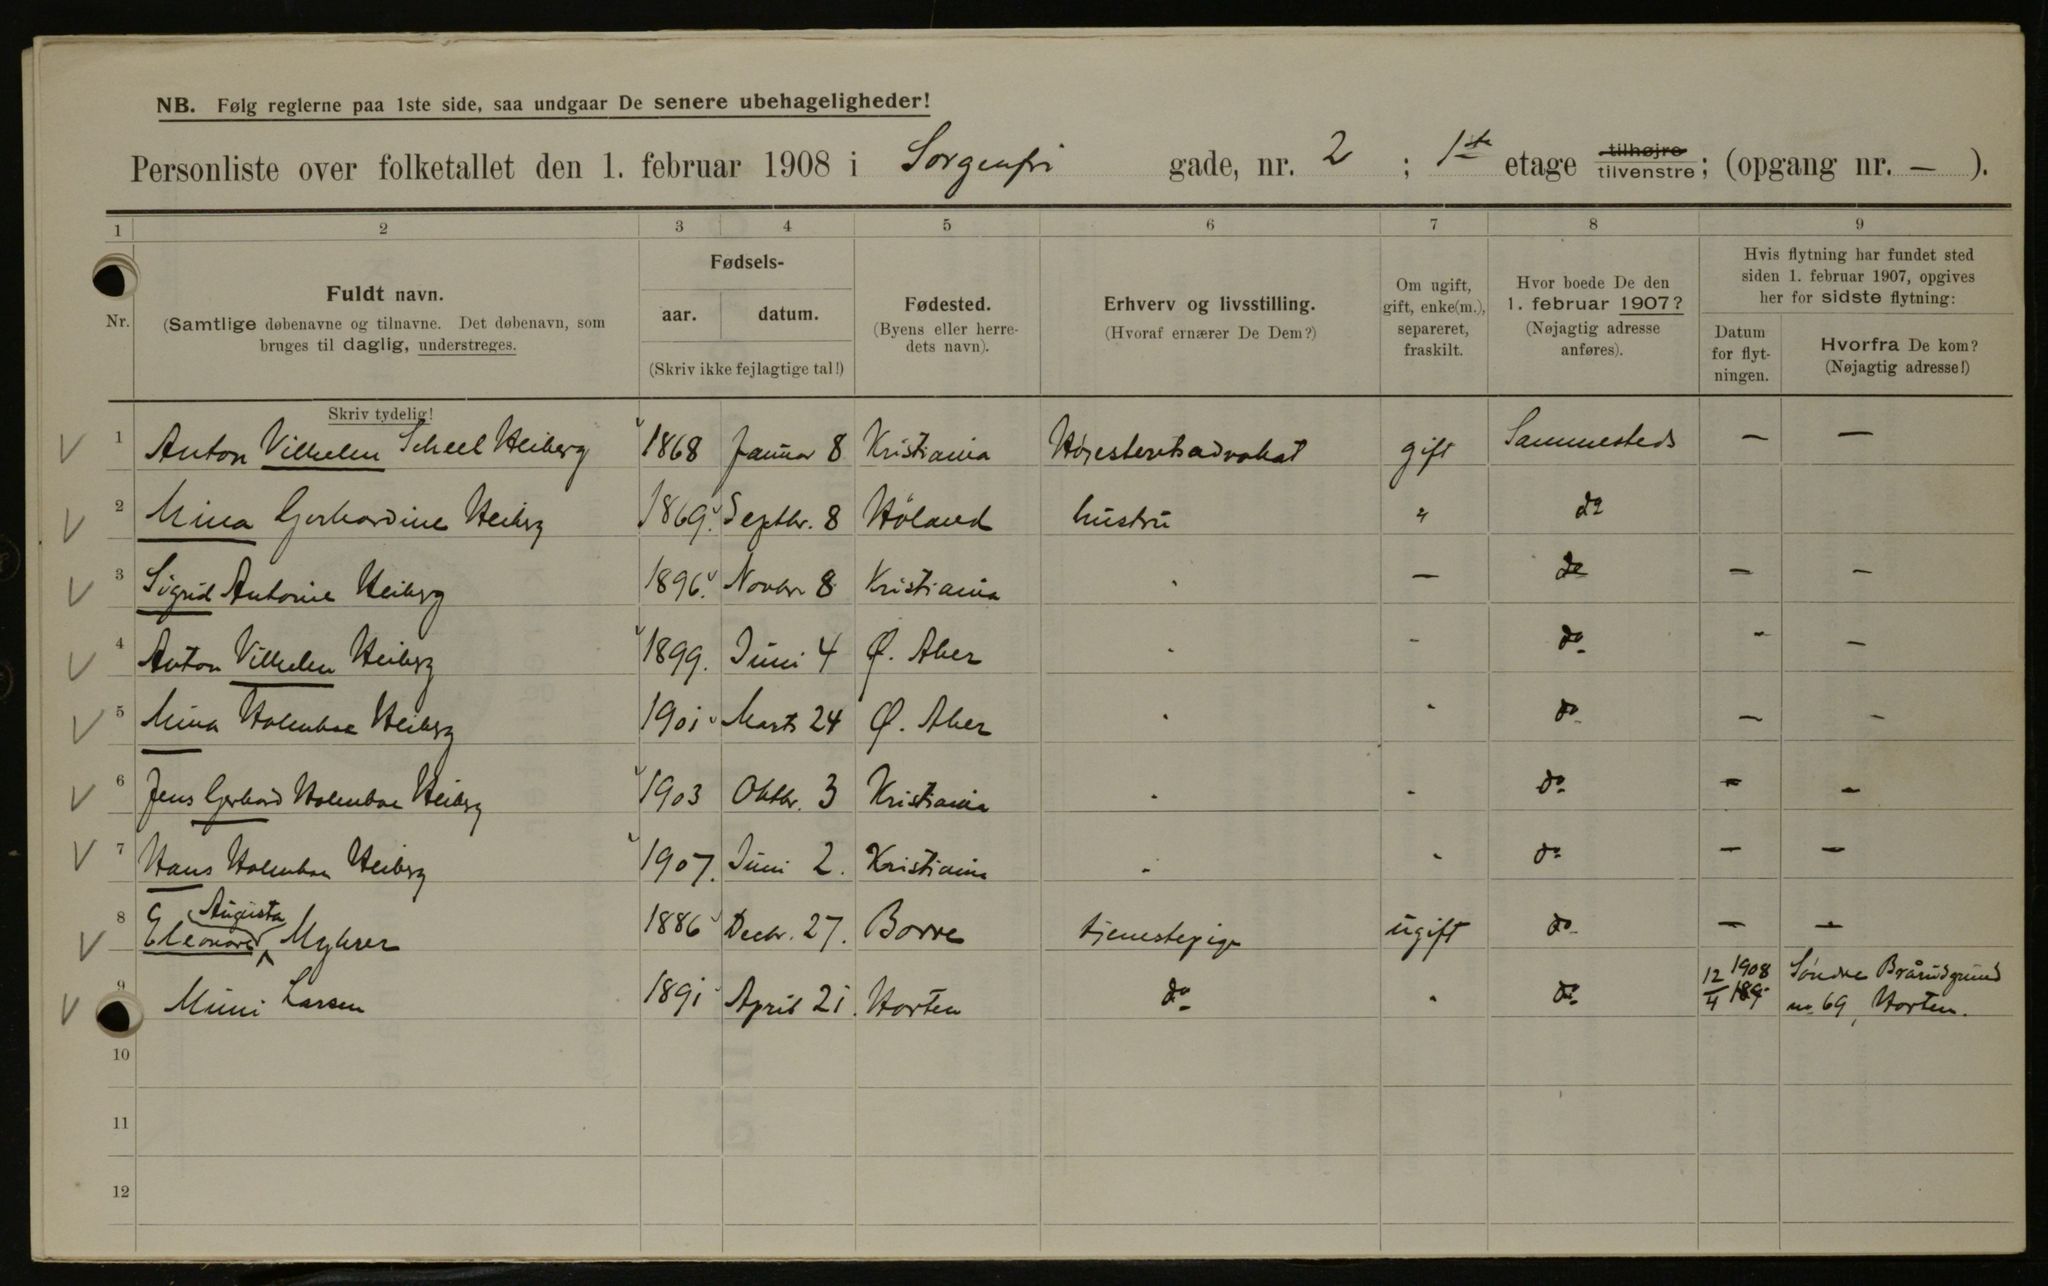 NB. Følg reglerne paa 1ste side, saa undgaar De senere ubehageligheder!
Personliste over folketallet den 1. februar 1908 i Sorgenfri gade, nr. 2 ; 1ste etage tilhøjre tilvenstre; (opgang nr. — ).
1 2 3 4 5 6 7 8 9
Nr.
Fuldt navn.
(Samtlige døbenavne og tilnavne. Det døbenavn, som
bruges til daglig, understreges.
Skriv tydelig!
Fødsels-
aar. datum.
(Skriv ikke fejlagtige tal!)
Fødested.
(Byens eller herre-
dets navn).
Erhverv og livsstilling.
(Hvoraf ernærer De Dem?)
Om ugift,
gift, enke(m.),
separeret,
fraskilt.
Hvor boede De den
1. februar 1907?
(Nøjagtig adresse
anføres).
Hvis flytning har fundet sted
siden 1. februar 1907, opgives
her for sidste flytning:
Datum
for flyt-
ningen.
Hvorfra De kom?
(Nøjagtig adresse!)
1 Anton Vilhelm Scheel Heiberg 1868 Januar 8 Kristiania Højesteretsadvokat gift Sammesteds — —
2 Mina Gerhardine Heiberg 1869. Septbr. 8 Höland hustru " do
3 Sigrid Antonie Heiberg 1896. Novbr 8 Kristiania " — do — —
4 Anton Vilhelm Heiberg 1899. Juni 4 Ø. Aker " - do - —
5 Mina Holmboe Heiberg 1901 Marts 24 Ø. Aker " " do — -
6 Jens Gerhard Holmboe Heiberg 1903 Oktbr. 3 Kristiania " - do — —
7 Hans Holmboe Heiberg 1907. Juni 2. Kristiania " " do — —
8 Eleonore Augusta Myhrer 1886 Decbr. 27. Borre tjenestepige ugift do — —
9 Mimi Larsen 1891 April 21. Horten do " do 12/4 1908 189 Söndre Bråridgrund
no 69, Horten.
10
11
12